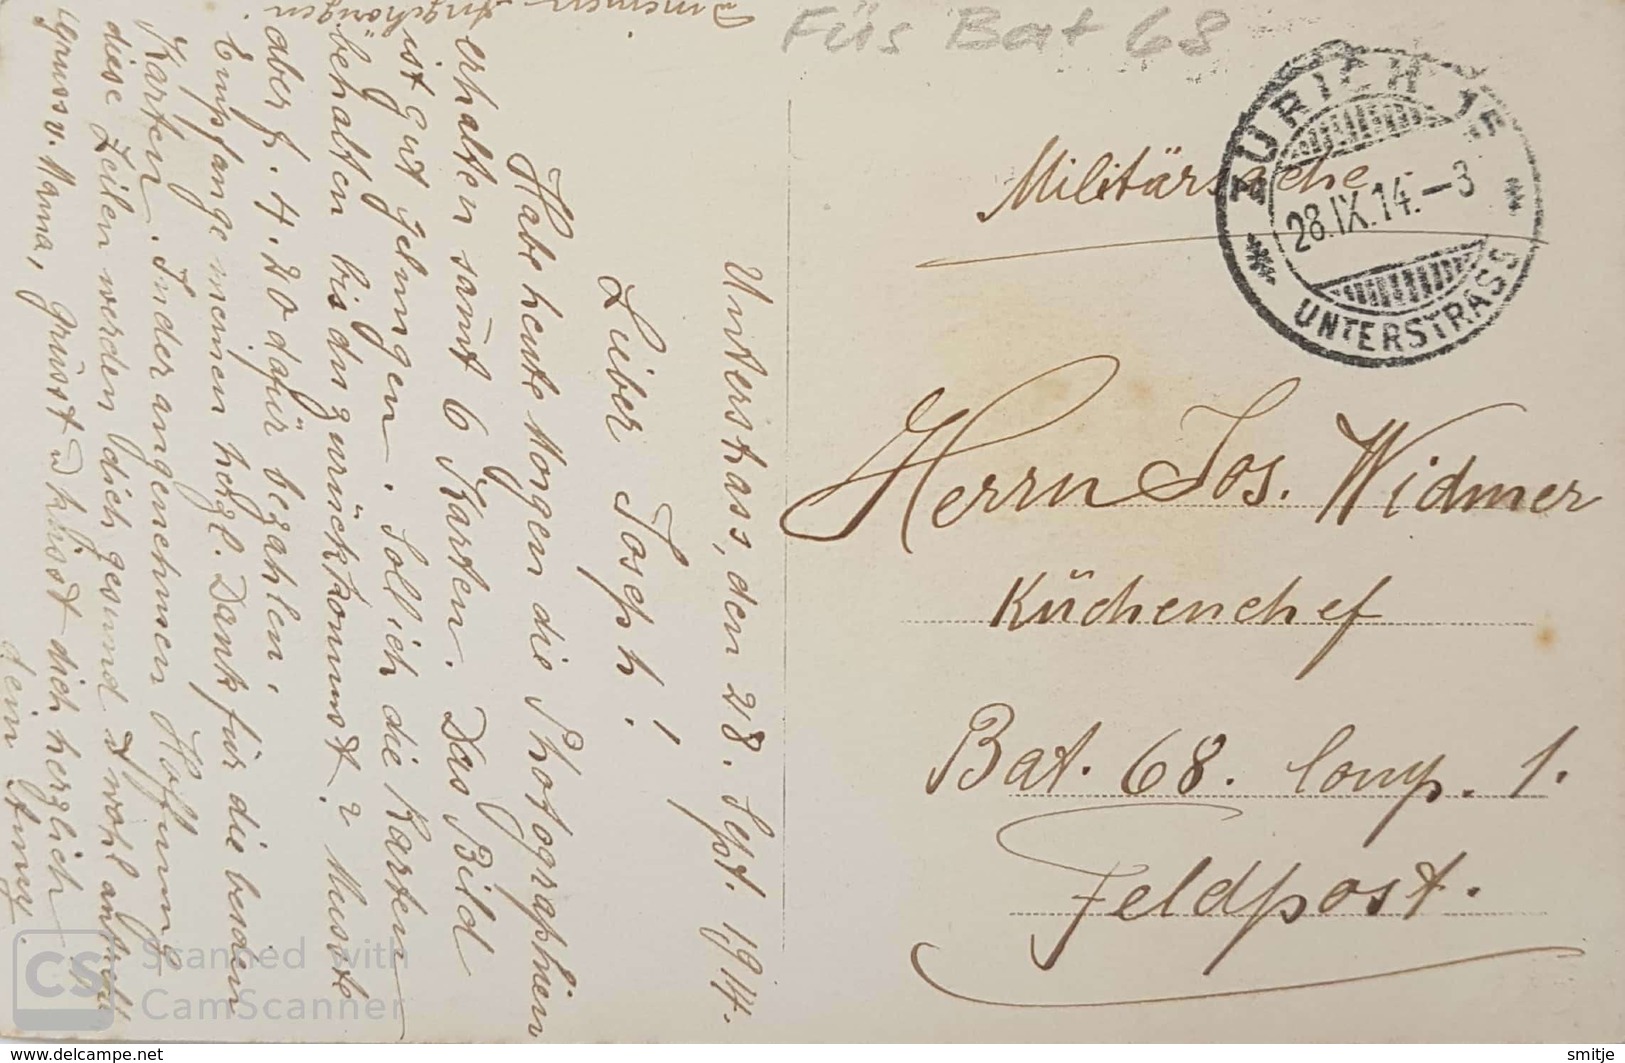 Füs Bat 68
Militärsache
ZÜRICH 15
28.IX.14.-3
UNTERSTRASS
Herrn Jos. Widmer
Küchenchef
Bat. 68. Comp. 1.
Feldpost.
Unterstrass, den 28. Sept. 1914.
Lieber Joseph!
Habe heute Morgen die Photographien
erhalten samt 6 Karten. Das Bild
ist gut gelungen. Soll ich die Karten
behalten bis du zurückkommst? Musste
aber f. 4.20 dafür bezahlen.
Empfange meinen herzl. Dank für die beiden
Karten. In der angenehmen Hoffnung
diese Zeilen werden dich gesund & wohl antreff.
grüsst & küsst dich herzlich
dein
Gruss v. Mama,
meinen Angehörigen.
CS Scanned with
CamScanner
www.delcampe.net
smitje